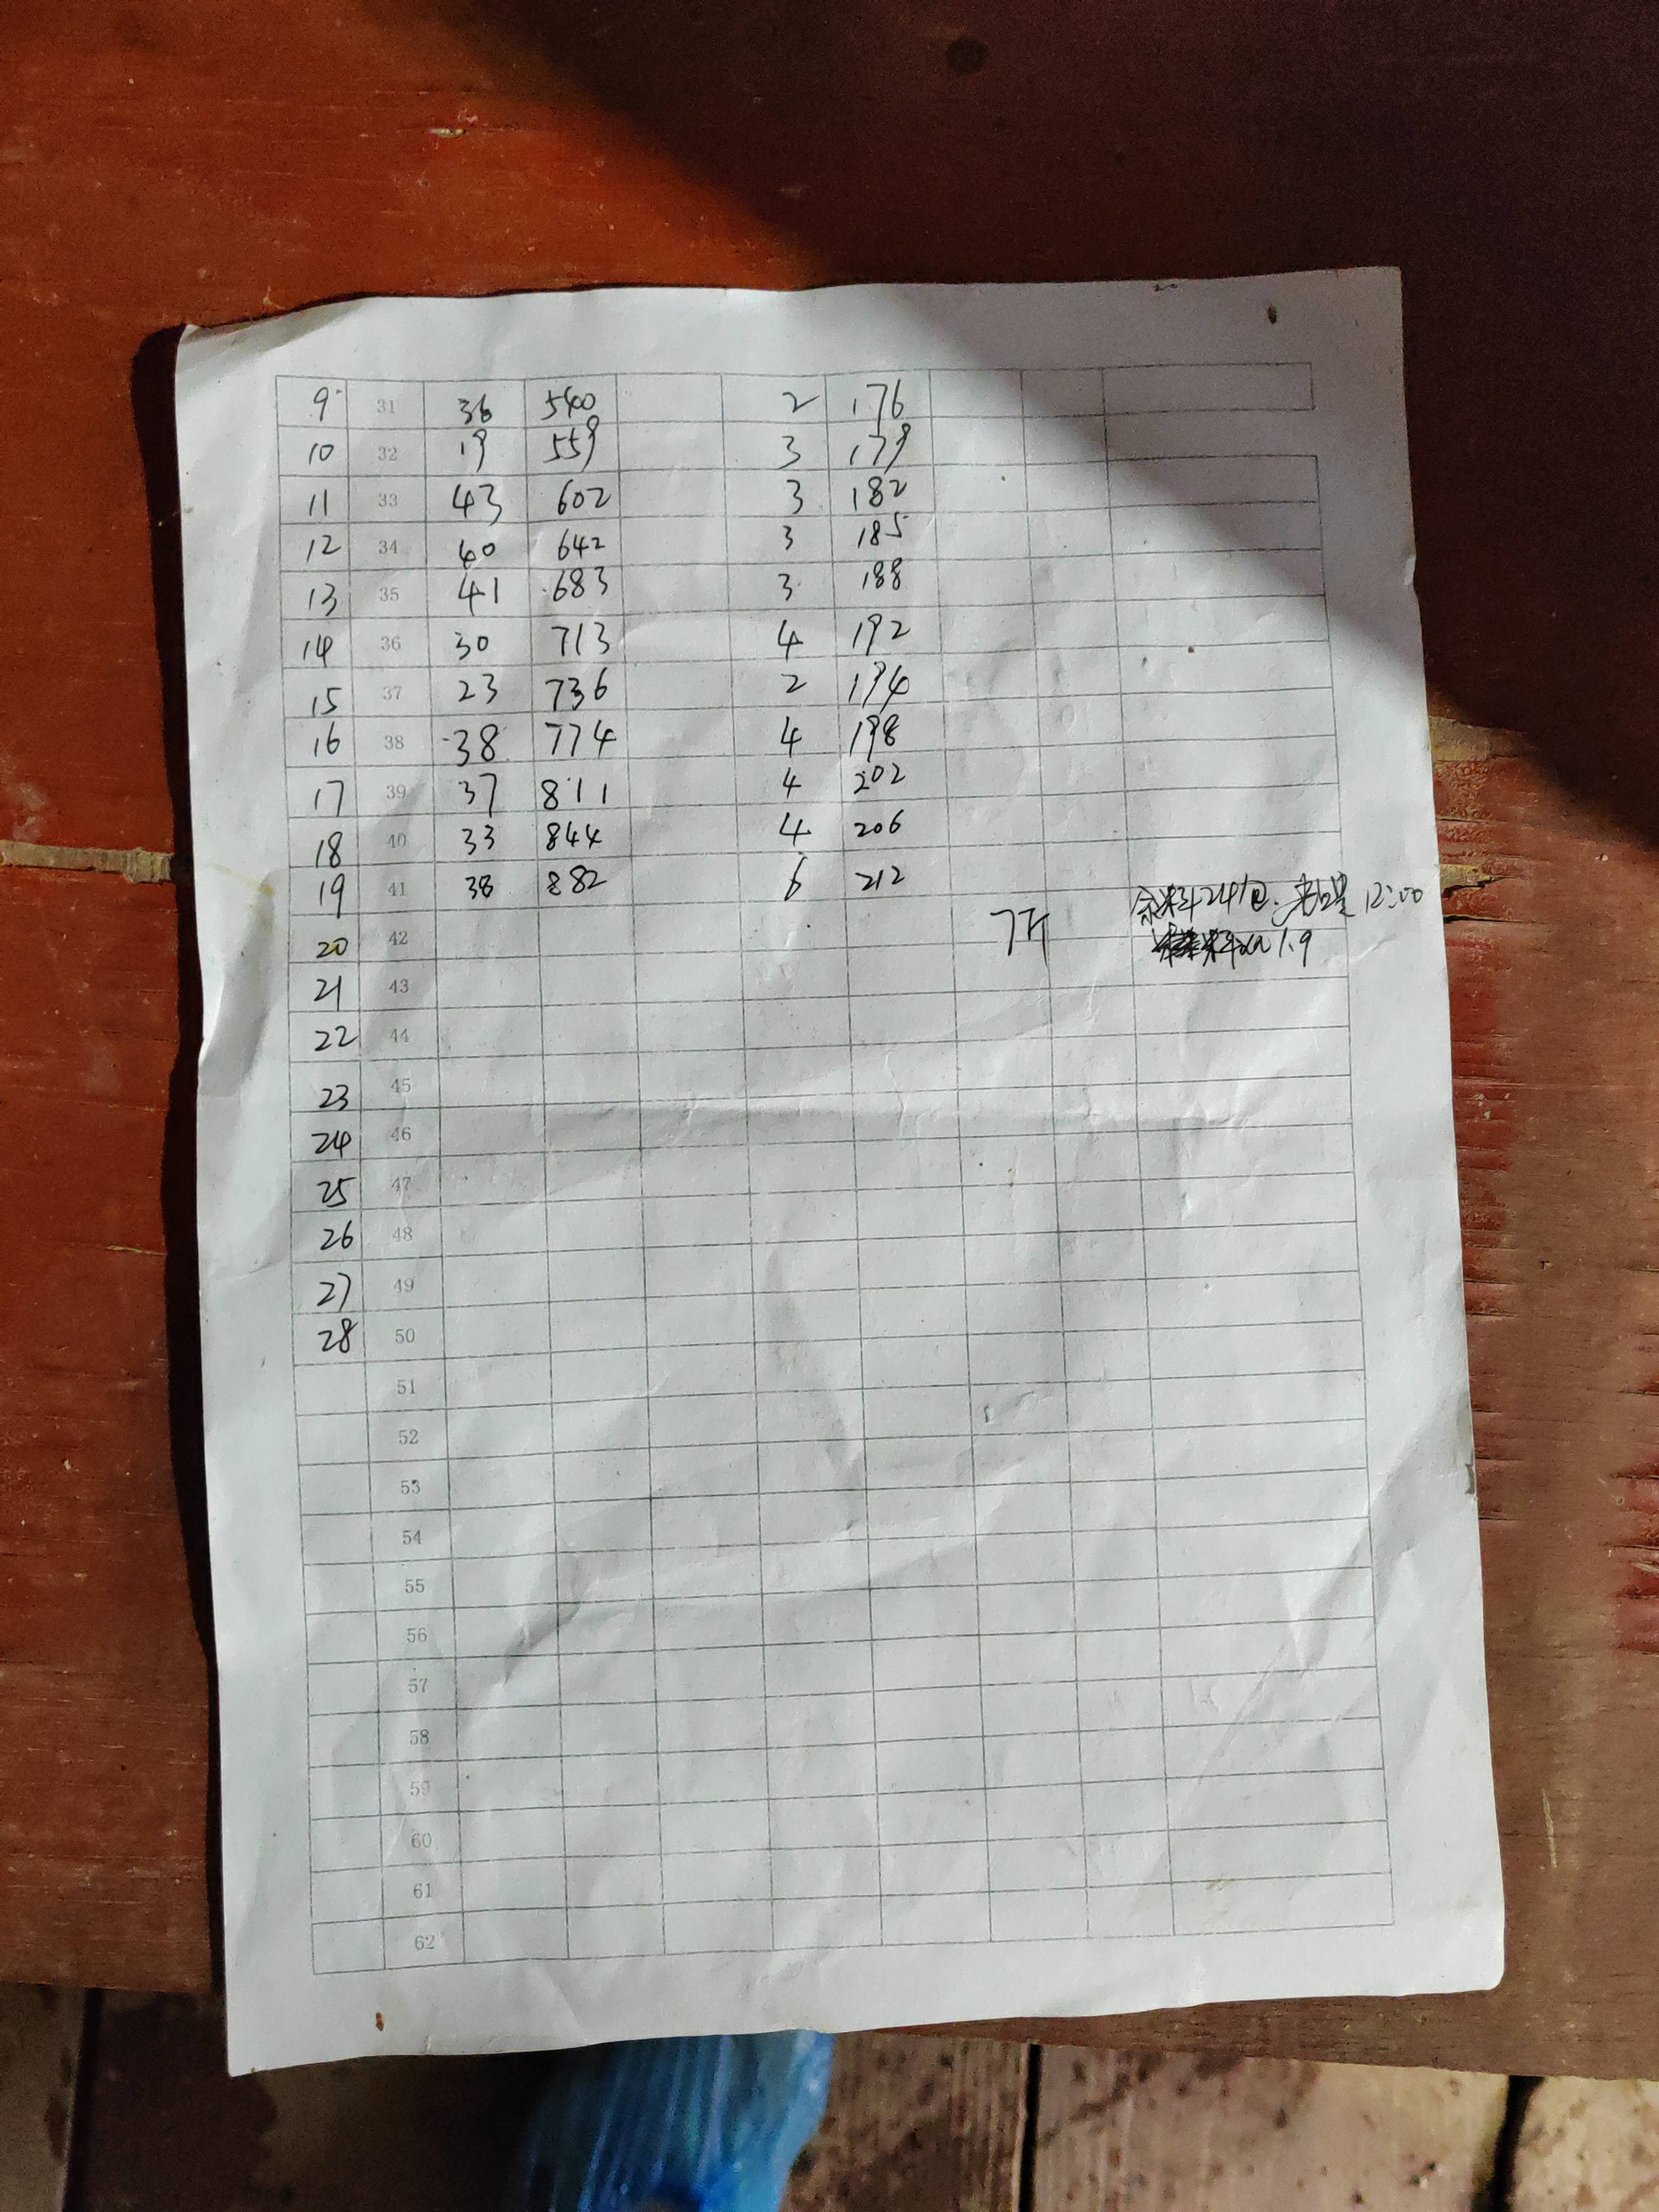 9 31 36 540 2 176
10 32 19 559 3 179
11 33 43 602 3 182
12 34 40 642 3 185
13 35 41 683 3 188
14 36 30 713 4 192
15 37 23 736 2 194
16 38 38 774 4 198
17 39 37 811 4 202
18 40 33 844 4 206
19 41 38 882 6 212
余料241包. 12:00
20 42 1.9
21 43
22 44
23 45
24 46
25 47
26 48
27 49
28 50
51
52
53
54
55
56
57
58
59
60
61
62